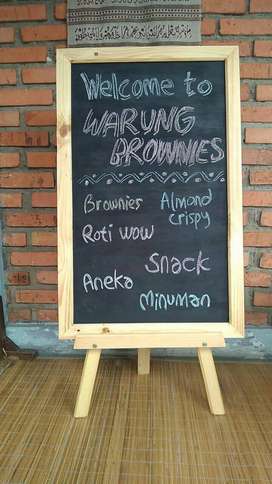 Welcome to
WARUNG
BROWNIES
Brownies
Almond
crispy
Roti wow
Snack
Aneka
Minuman